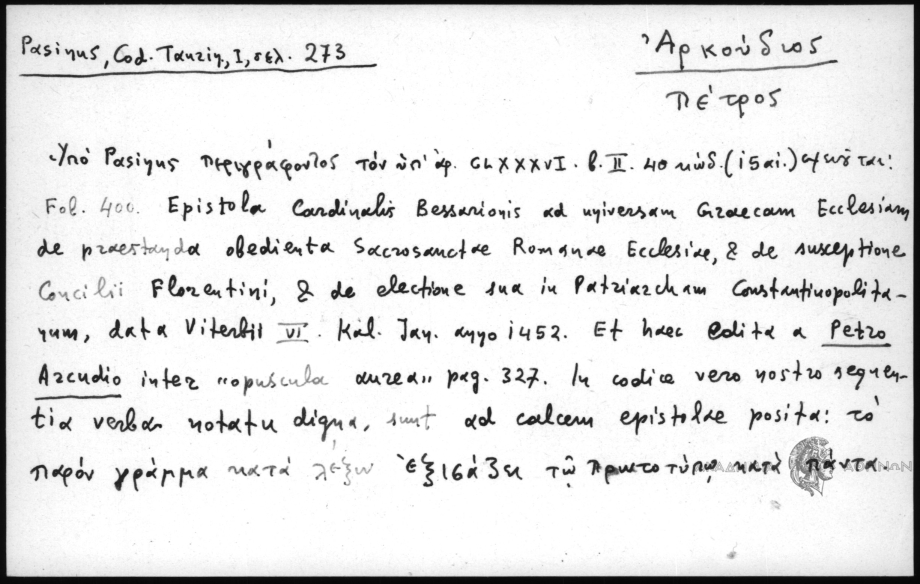 Pasinus, Cod. Taurin, I, σελ. 273
Ἀρκούδιος
Πέτρος
Ὑπό Pasinus περιγράφοντος τόν ὑπ' ἀρ. CLXXXVI. b. II. 40 κώδ. (ι5 αἰ.)
Fol. 400. Epistola Cardinalis Bessarionis ad universam Graecam Ecclesiam
de praestanda obedienta Sacrosanctae Romanae Ecclesiae, & de susceptione
Concilii Florentini, & de electione sua in Patriarcham Constantinopolita-
num, data Viterbii VI. Kal. Jan. anno 1452. Et haec edita a Petro
Arcudio inter «opuscula aurea» pag. 327. In codice vero nostro sequen-
tia verba notatu digna, sunt ad calcem epistolae posita: τό
παρόν γράμμα κατά λέξιν ἐξισάζει τῷ πρωτοτύπῳ κατά πάντα.